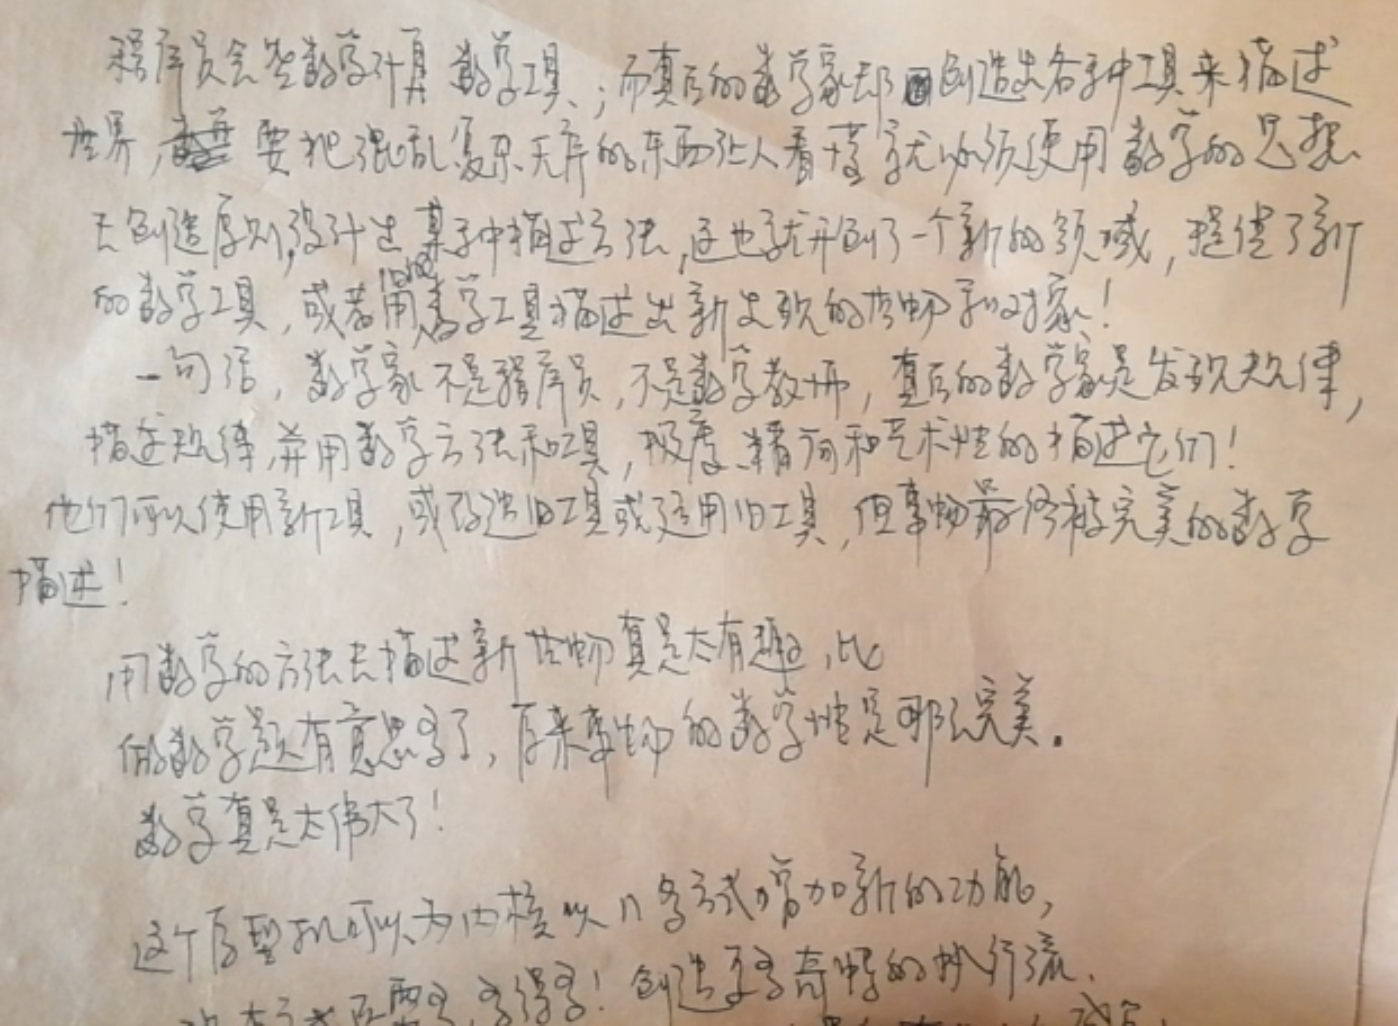 程序员会些数学计算 数学工具；而真正的数学家却创造出各种工具来描述
世界，要把混乱复杂无序的东西让人看懂就必须使用数学的思想
去创造原则，设计出某种描述方法，这也就开创了一个新的领域，提供了新
的数学工具，或者用旧的数学工具描述出新发现的事物和对象！
一句话，数学家不是程序员，不是数学教师，真正的数学家是发现规律，
描述规律，并用数学方法和工具，极度、精简和艺术性的描述它们！
他们可以使用新工具，或改造旧工具或运用旧工具，但事物最终被完美的数学
描述！
用数学的方法去描述新事物真是太有趣，比
做数学题有意思多了，原来事物的数学性是那么完美。
数学真是太伟大了！
这个原型机可以为内核以几多方式增加新的功能，
多得多！创造更多奇怪的执行流．